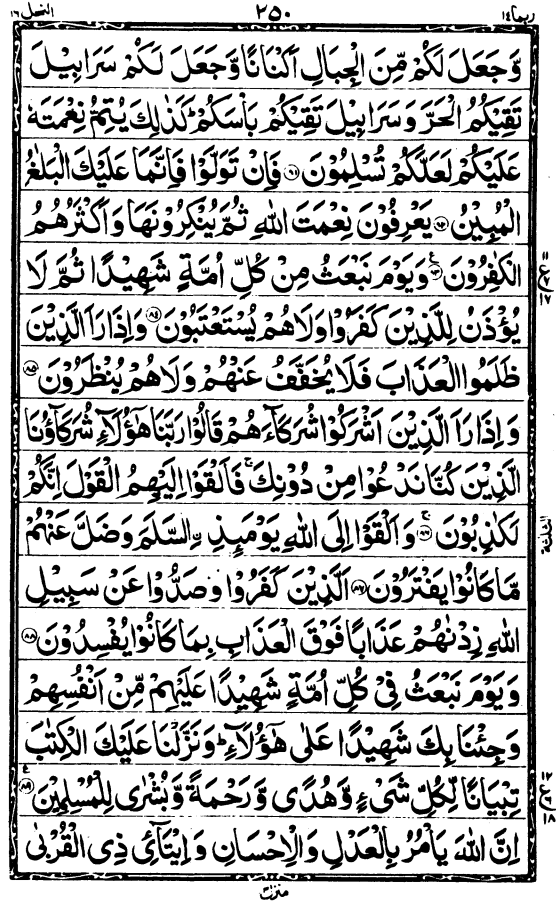 ربما ١٤ ٢٥٠ النحل ١٦
وَّجَعَلَ لَكُمْ مِّنَ الْجِبَالِ اَكْنَانًا وَّجَعَلَ لَكُمْ سَرَابِيْلَ
تَقِيْكُمُ الْحَرَّ وَسَرَابِيْلَ تَقِيْكُمْ بَاْسَكُمْ ؕ كَذٰلِكَ يُتِمُّ نِعْمَتَهٗ
عَلَيْكُمْ لَعَلَّكُمْ تُسْلِمُوْنَ ۝۸۱ فَاِنْ تَوَلَّوْا فَاِنَّمَا عَلَيْكَ الْبَلٰغُ
الْمُبِيْنُ ۝۸۲ يَعْرِفُوْنَ نِعْمَتَ اللّٰهِ ثُمَّ يُنْكِرُوْنَهَا وَاَكْثَرُهُمُ
الْكٰفِرُوْنَ ۝۸۳ وَيَوْمَ نَبْعَثُ مِنْ كُلِّ اُمَّةٍ شَهِيْدًا ثُمَّ لَا
يُؤْذَنُ لِلَّذِيْنَ كَفَرُوْا وَلَا هُمْ يُسْتَعْتَبُوْنَ ۝۸۴ وَاِذَا رَاَ الَّذِيْنَ
ظَلَمُوا الْعَذَابَ فَلَا يُخَفَّفُ عَنْهُمْ وَلَا هُمْ يُنْظَرُوْنَ ۝۸۵
وَاِذَا رَاَ الَّذِيْنَ اَشْرَكُوْا شُرَكَآءَهُمْ قَالُوْا رَبَّنَا هٰٓؤُلَآءِ شُرَكَآؤُنَا
الَّذِيْنَ كُنَّا نَدْعُوْا مِنْ دُوْنِكَ ۚ فَاَلْقَوْا اِلَيْهِمُ الْقَوْلَ اِنَّكُمْ
لَكٰذِبُوْنَ ۝۸۶ۚ وَاَلْقَوْا اِلَى اللّٰهِ يَوْمَئِذِ ۨالسَّلَمَ وَضَلَّ عَنْهُمْ
مَّا كَانُوْا يَفْتَرُوْنَ ۝۸۷ اَلَّذِيْنَ كَفَرُوْا وَصَدُّوْا عَنْ سَبِيْلِ
اللّٰهِ زِدْنٰهُمْ عَذَابًا فَوْقَ الْعَذَابِ بِمَا كَانُوْا يُفْسِدُوْنَ ۝۸۸
وَيَوْمَ نَبْعَثُ فِيْ كُلِّ اُمَّةٍ شَهِيْدًا عَلَيْهِمْ مِّنْ اَنْفُسِهِمْ
وَجِئْنَا بِكَ شَهِيْدًا عَلٰى هٰٓؤُلَآءِ ؕ وَنَزَّلْنَا عَلَيْكَ الْكِتٰبَ
تِبْيَانًا لِّكُلِّ شَيْءٍ وَّهُدًى وَّرَحْمَةً وَّبُشْرٰى لِلْمُسْلِمِيْنَ ۝۸۹
اِنَّ اللّٰهَ يَاْمُرُ بِالْعَدْلِ وَالْاِحْسَانِ وَاِيْتَآئِ ذِي الْقُرْبٰى
منزل ٣